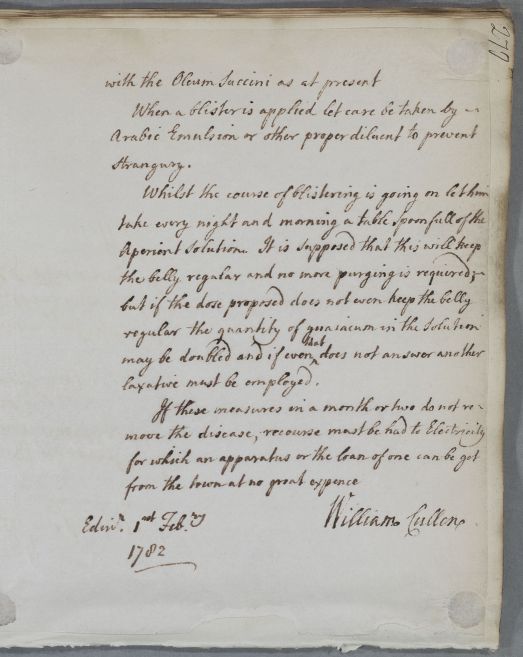 277
with the Oleum Succini as at present
When a blister is applied let care be taken by
Arabic Emulsion or other proper diluent to prevent
strangury.
Whilst the course of blistering is going on let him
take every night and morning a table spoonfull of the
Aperient Solution. It is supposed that this will keep
the belly regular and no more purging is required;
but if the dose proposed does not even keep the belly
regular the quantity of guaiacum in the Solution
may be doubled and if even that does not answer another
laxative must be employed.
If these measures in a month or two do not re-
move the disease, recourse must be had to Electricity
for which an apparatus or the loan of one can be got
from the town at no great expence
Edinr. 1st Febry William Cullen
1782